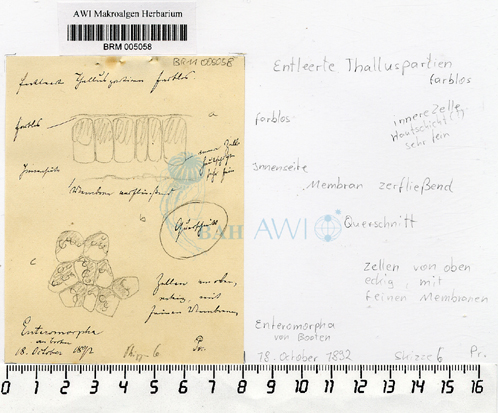 AWI Makroalgen Herbarium
BRM 005058
BRM 005058
Entleerte Thalluspartien farblos
farblos
a
Innenseite
Membran zerfließend
b
Querschnitt
c
Zellen von oben,
eckig, mit
feinen Membranen
Enteromorpha
18. October 1892
6
Pr.
Entleerte Thalluspartien
farblos
farblos
innere Zelle
Hautschicht (?)
sehr fein
Innenseite
Membran zerfließend
Querschnitt
Zellen von oben
eckig, mit
feinen Membranen
Enteromorpha
von Booten
18. October 1892
Skizze 6
Pr.
BAH AWI
0 1 2 3 4 5 6 7 8 9 10 11 12 13 14 15 16